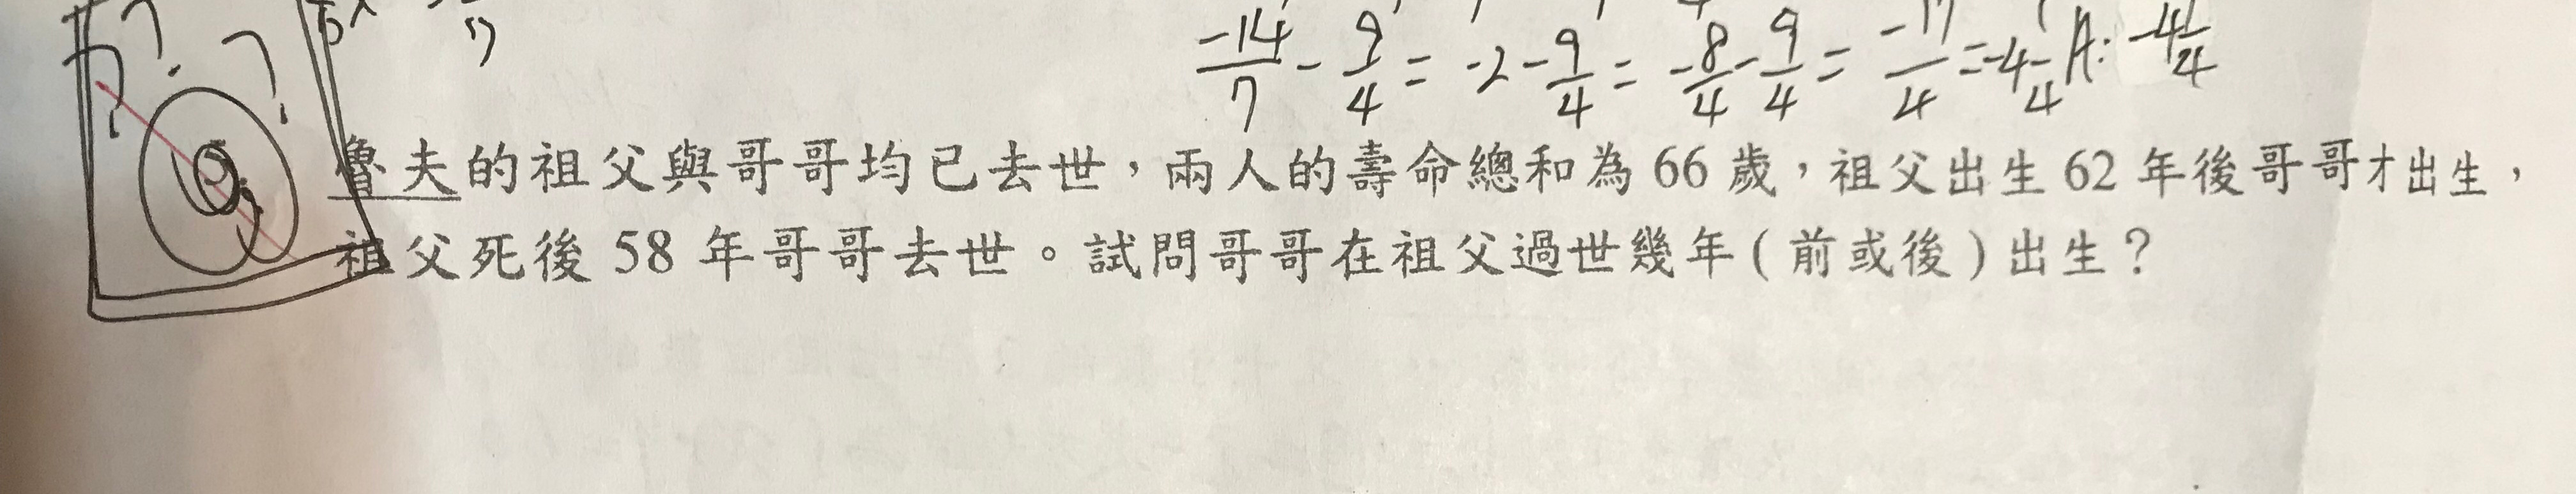 -14/7 - 9/4 = -2 - 9/4 = -8/4 - 9/4 = -17/4 = -4 1/4 A: -4 1/4
魯夫的祖父與哥哥均已去世，兩人的壽命總和為 66 歲，祖父出生 62 年後哥哥才出生，
祖父死後 58 年哥哥去世。試問哥哥在祖父過世幾年（前或後）出生？